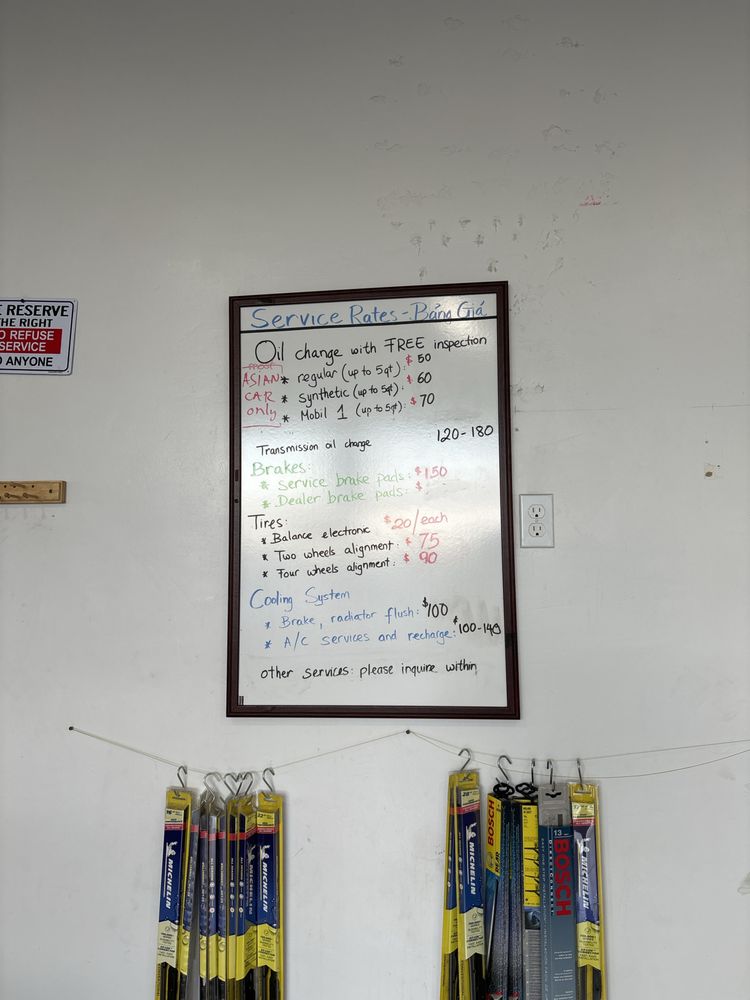 E RESERVE
THE RIGHT
TO REFUSE
SERVICE
TO ANYONE
Service Rates - Bảng Giá
Oil change with FREE inspection
ASIAN
CAR
only
* regular (up to 5qt): $50
* synthetic (up to 5qt): $60
* Mobil 1 (up to 5qt): $70
Transmission oil change 120-180
Brakes:
* Service brake pads: $150
* Dealer brake pads: $
Tires:
* Balance electronic $20/each
* Two wheels alignment: $75
* Four wheels alignment: $90
Cooling System
* Brake, radiator flush: $100
* A/C services and recharge: $100-149
other services: please inquire within
MICHELIN
MICHELIN
MICHELIN
MICHELIN
BOSCH
13
BOSCH
MICHELIN